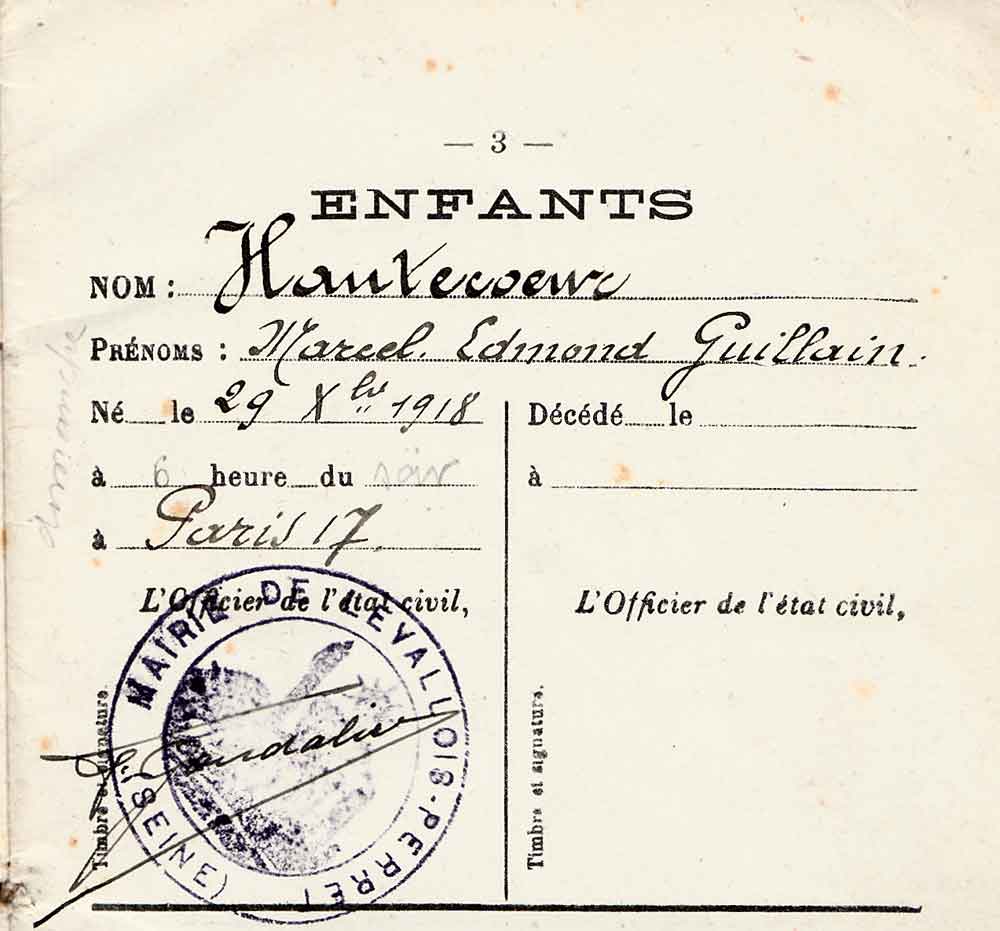 — 3 —
ENFANTS
NOM : Hautecoeur
PRÉNOMS : Marcel. Edmond Guillain.
Né le 29 Xbre 1918
à 6 heure du soir
à Paris 17.
L'Officier de l'état civil,
Timbre et signature.
MAIRIE DE LEVALLOIS-PERRET
(SEINE)
Décédé le
à
L'Officier de l'état civil,
Timbre et signature.